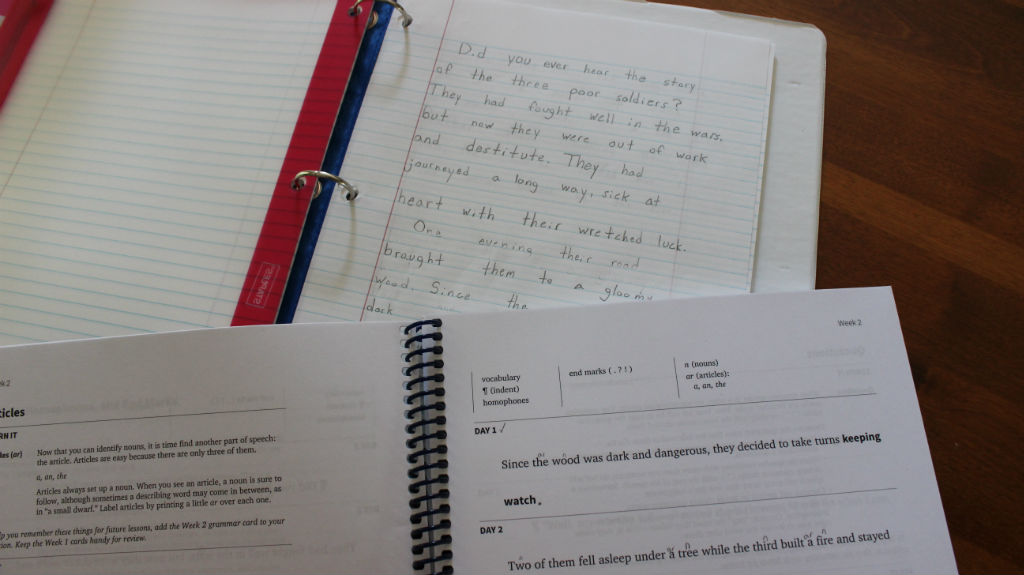 Did you ever hear the story
of the three poor soldiers?
They had fought well in the wars,
but now they were out of work
and destitute. They had
journeyed a long way, sick at
heart with their wretched luck.
One evening their road
brought them to a gloomy
wood. Since the
dark
STAPLES
Week 2
vocabulary
¶ (indent)
homophones
end marks ( . ? ! )
n (nouns)
ar (articles):
a, an, the
DAY 1 ✓
ar n
Since the wood was dark and dangerous, they decided to take turns keeping
watch .
DAY 2
ar n n ar n
Two of them fell asleep under a tree while the third built a fire and stayed
Now that you can identify nouns, it is time find another part of speech:
the article. Articles are easy because there are only three of them.
a, an, the
Articles always set up a noun. When you see an article, a noun is sure to
follow, although sometimes a describing word may come in between, as
in "a small dwarf." Label articles by printing a little ar over each one.
you remember these things for future lessons, add the Week 2 grammar card to your
Keep the Week 1 cards handy for review.